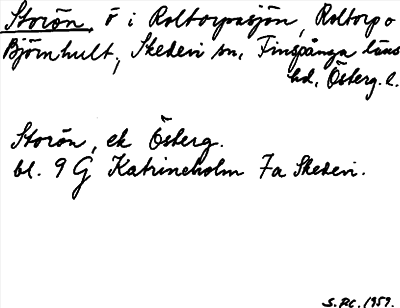 Storön, ö i Roltorpasjön, Roltorp o
Björnhult, Skedevi sn, Finspånga läns
hd, Österg. l.
Storön, ek Österg.
bl. 9 G Katrineholm 7a Skedevi.
1959.